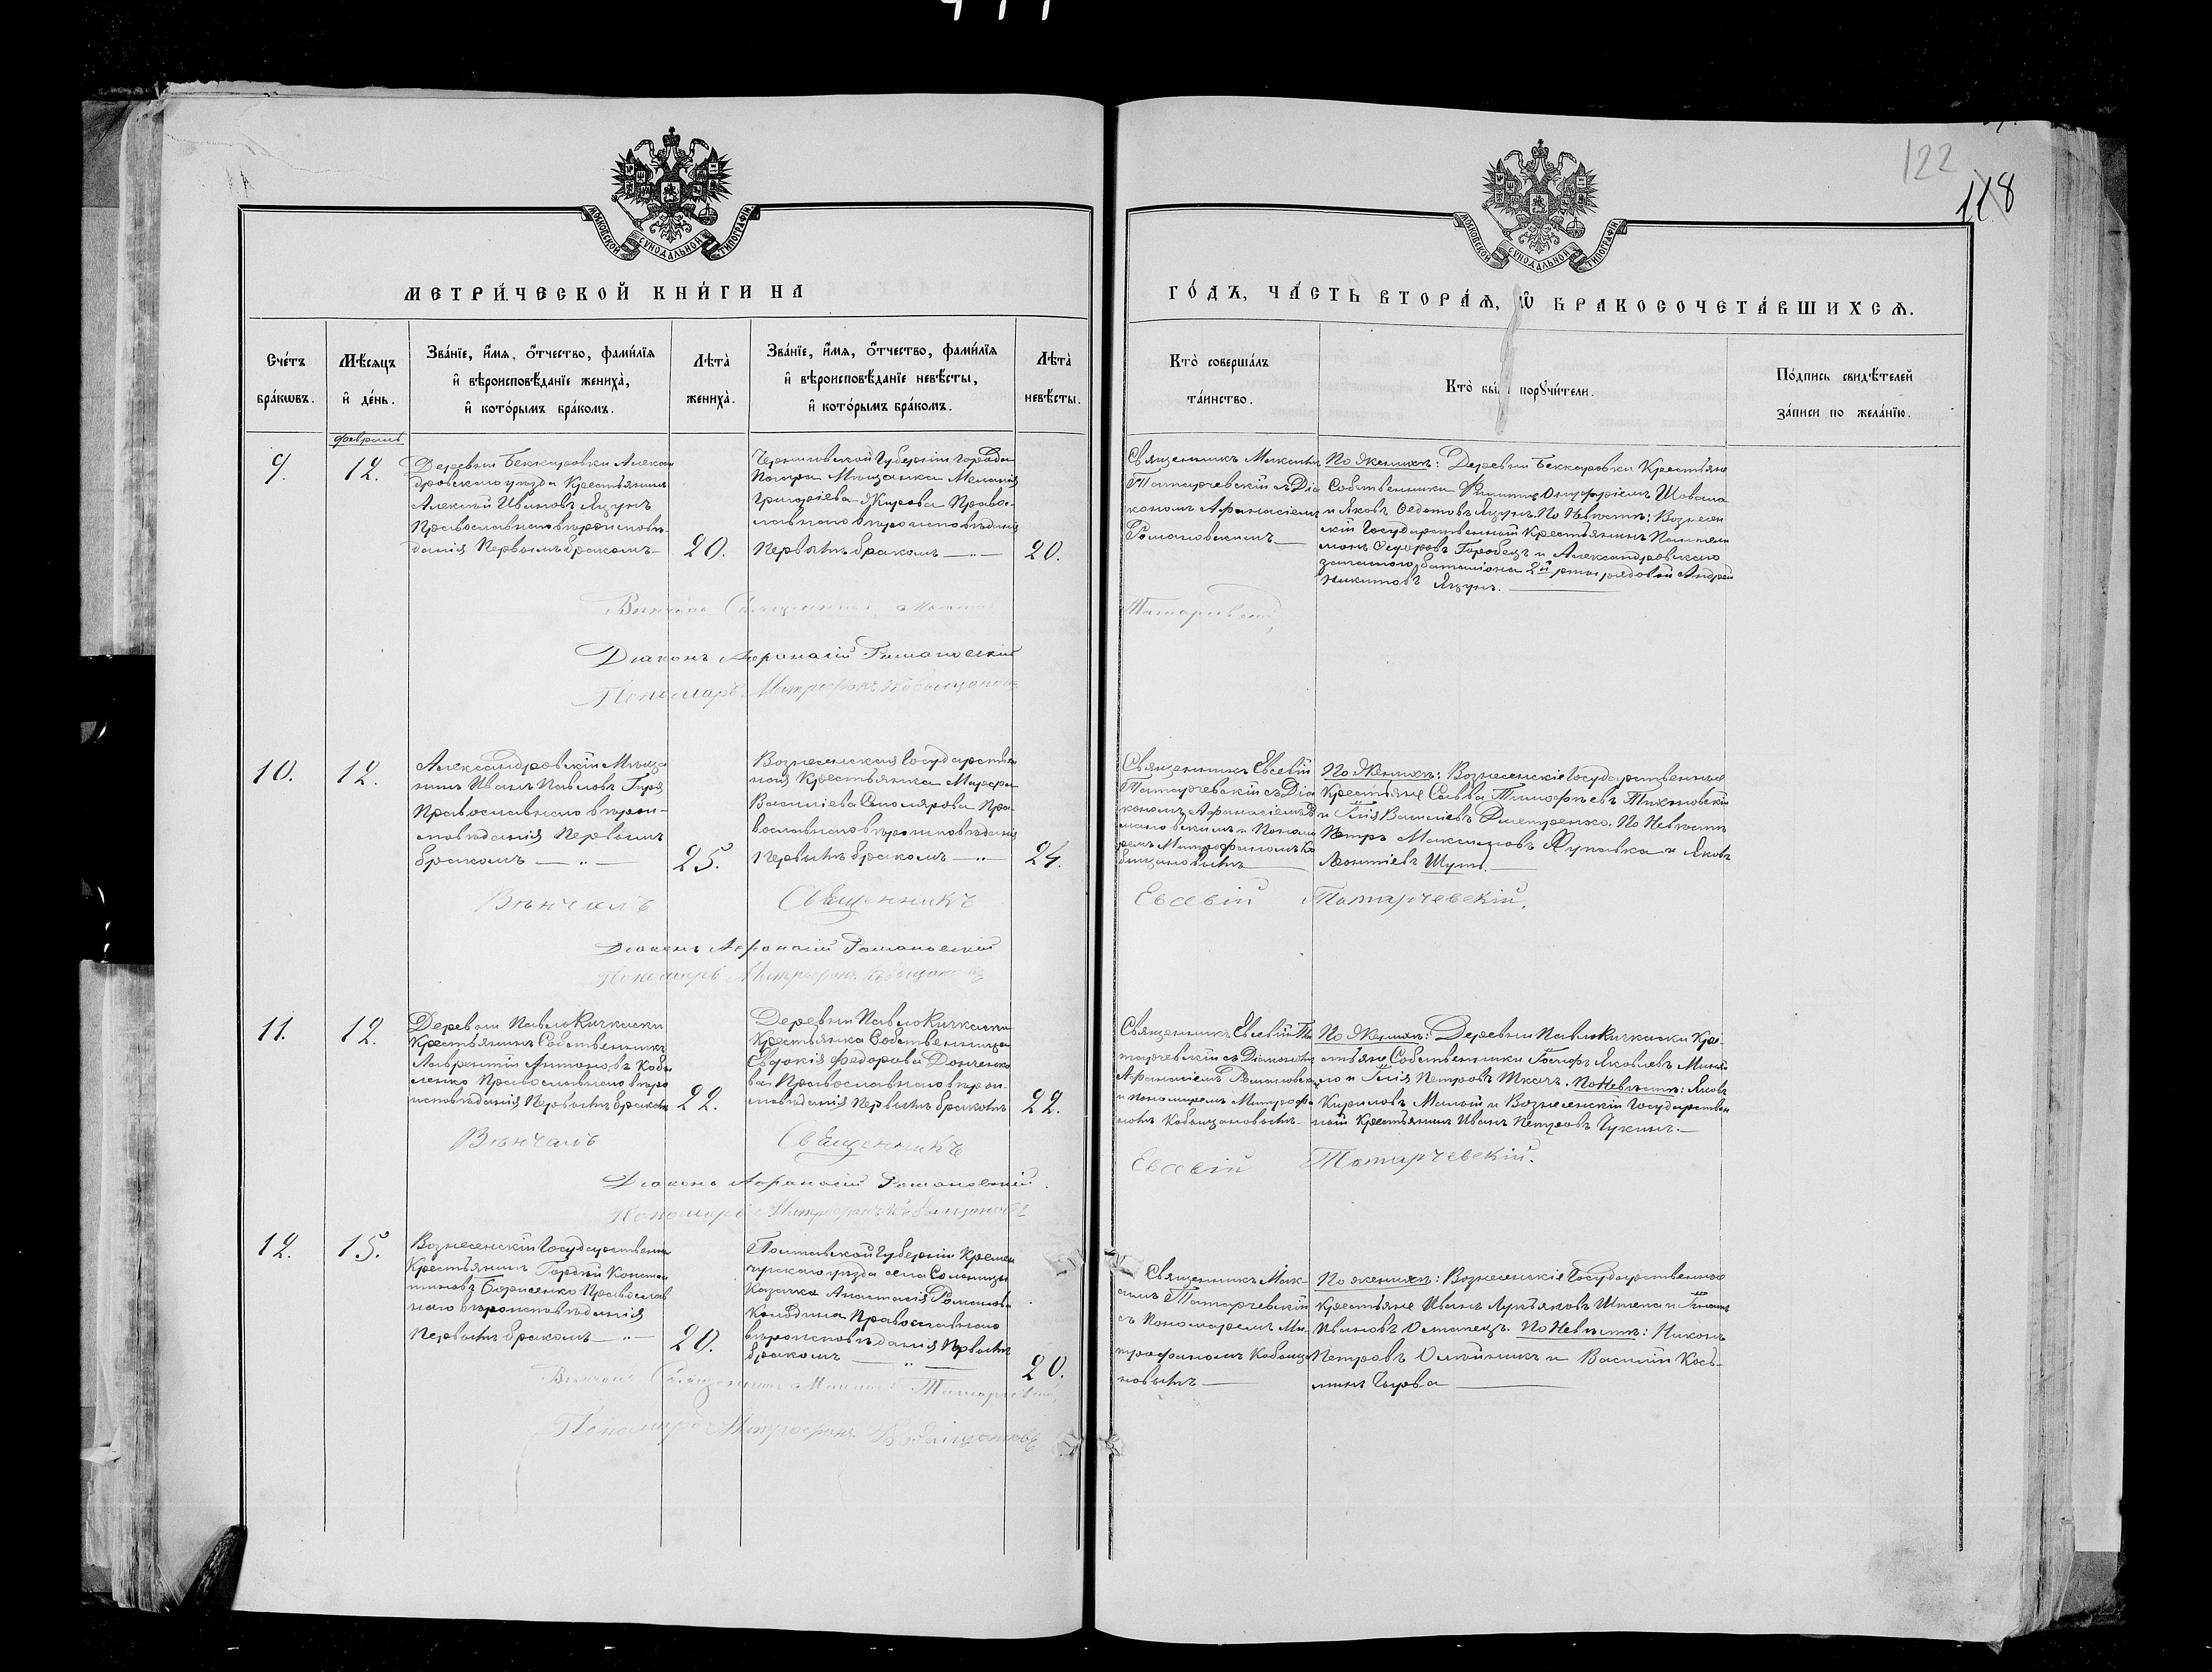 122
118
МОСКОВСКОЙ СУНОДАЛЬНОЙ ТИПОГРАФІИ
МОСКОВСКОЙ СУНОДАЛЬНОЙ ТИПОГРАФІИ
МЕТРИ́ЧЕСКОЙ КНИ́ГИ НА
ГО́ДЪ, ЧА́СТЬ ВТОРА́Ѧ, Ѽ БРАКОСОЧЕТА́ВШИХСѦ.
Сче́тъ бра́кѡвъ.
Мѣ́сѧцъ и҆ де́нь.
Зва́нїе, и҆́мѧ, ѻ҆́тчество, фами́лїѧ
и҆ вѣроисповѣ́данїе жениха̀,
и҆ кото́рымъ бра́комъ.
Лѣта̀ жениха̀.
Зва́нїе, и҆́мѧ, ѻ҆́тчество, фами́лїѧ
и҆ вѣроисповѣ́данїе невѣ́сты,
и҆ кото́рымъ бра́комъ.
Лѣта̀ невѣ́сты.
Кто̀ соверша́лъ
та́инство.
Кто̀ бы́ порꙋчи́тели.
По́дпись свидѣ́телей
за́писи по жела́нїю.
февраль
9.
12.
Деревни Беккаровки Алексан
дровскаго уѣзда Крестьянинъ
Алексѣй Ивановъ Яцунъ
Православнаго вѣроисповѣ-
данія Первымъ бракомъ —
20.
Черниговской Губерніи города
Погара Мѣщанка Меланія
Григоріева Жирова Право-
славнаго вѣроисповѣданія
первымъ бракомъ — „ —
20.
Священникъ Максимъ
Татарчевскій съ Діа
кономъ Афанасіемъ
Романовскимъ —
По Женихѣ: Деревни Беккаровки Крестьяне
Собственники Филиппъ Онуфріевъ Шовала
и Яковъ Федотовъ Яцунъ. По Невѣстѣ: Вознесен
скій Государственный Крестьянинъ Пантелей
монъ Федоровъ Горобецъ и Александровскаго
запаснаго баталіона 2й роты рядовой Андрей
Никитовъ Яцунъ. —
Вѣнчалъ Священникъ Максимъ
Татарчевскій,
Діаконъ Афанасій Романовскій
Пономарь Митрофанъ Кобыщановъ
10.
12.
Александровскій Мѣща
нинъ Иванъ Павловъ Гиря
Православнаго вѣрои-
сповѣданія Первымъ
бракомъ — „ —
25.
Вознесенская Государствен
ная Крестьянка Марфа
Василіева Столярова Пра-
вославнаго вѣроисповѣданія
Первымъ бракомъ — „ —
24.
Священникъ Евсевій
Татарчевскій съ Діа
кономъ Афанасіемъ Ро
мановскимъ и Понома
ремъ Митрофаномъ Ко
быщановымъ
По Женихѣ: Вознесенскіе Государственные
Крестьяне Савва Тимофѣевъ Тихновскій
и Илія Василіевъ Дметренко. По Невѣстѣ
Петръ Максимовъ Жупавка и Яковъ
Леонтіевъ Шутъ. —
Вѣнчалъ Священникъ
Евсевій Татарчевскій.
Діаконъ Афанасій Романовскій
Пономарь Митрофанъ Кобыщановъ
11.
12.
Деревни Павлокичкаски
Крестьянинъ Собственникъ
Лаврентій Антоновъ Кобы
ленко Православнаго вѣро
исповѣданія Первымъ бракомъ
22.
Деревни Павлокичкаски
Крестьянка Собственница
Евдокія Федорова Донченко
ва Православнаго вѣрои-
сповѣданія Первымъ бракомъ
22.
Священникъ Евсевій Та
тарчевскій съ Діакономъ
Афанасіемъ Романовскимъ
и пономаремъ Митрофа
номъ Кобыщановымъ —
По Женихѣ: Деревни Павлокичкаски Кре-
стьяне Собственники Іосифъ Яковлевъ
и Илія Петровъ Ткачъ. По Невѣстѣ: Яковъ
Кириловъ Малый и Вознесенскій Государствен
ный Крестьянинъ Иванъ Петровъ Чукинъ. —
Вѣнчалъ Священникъ
Евсевій Татарчевскій.
Діаконъ Афанасій Романовскій.
Пономарь Митрофанъ Кобыщановъ
12.
15.
Вознесенскій Государственный
Крестьянинъ Гордѣй Констан
тиновъ Борисенко Православ
наго вѣроисповѣданія
Первымъ бракомъ — „ —
20.
Полтавской Губерніи Кремен
чугскаго уѣзда села Солоницы
Казачка Анастасія Романова
Колодина Православнаго
вѣроисповѣданія Первымъ
бракомъ — „ —
20.
Священникъ Мак-
симъ Татарчевскій
съ Пономаремъ Ми-
трофаномъ Кобыща
новымъ —
По женихѣ: Вознесенскіе Государственные
Крестьяне Иванъ Лукьяновъ Штепа и Игнатъ
Ивановъ Остапецъ. По Невѣстѣ: Никонъ
Петровъ Олейникъ и Василій Кось-
минъ Сырва —
Вѣнчалъ Священникъ Максимъ Татарчевскій,
Пономарь Митрофанъ Кобыщановъ